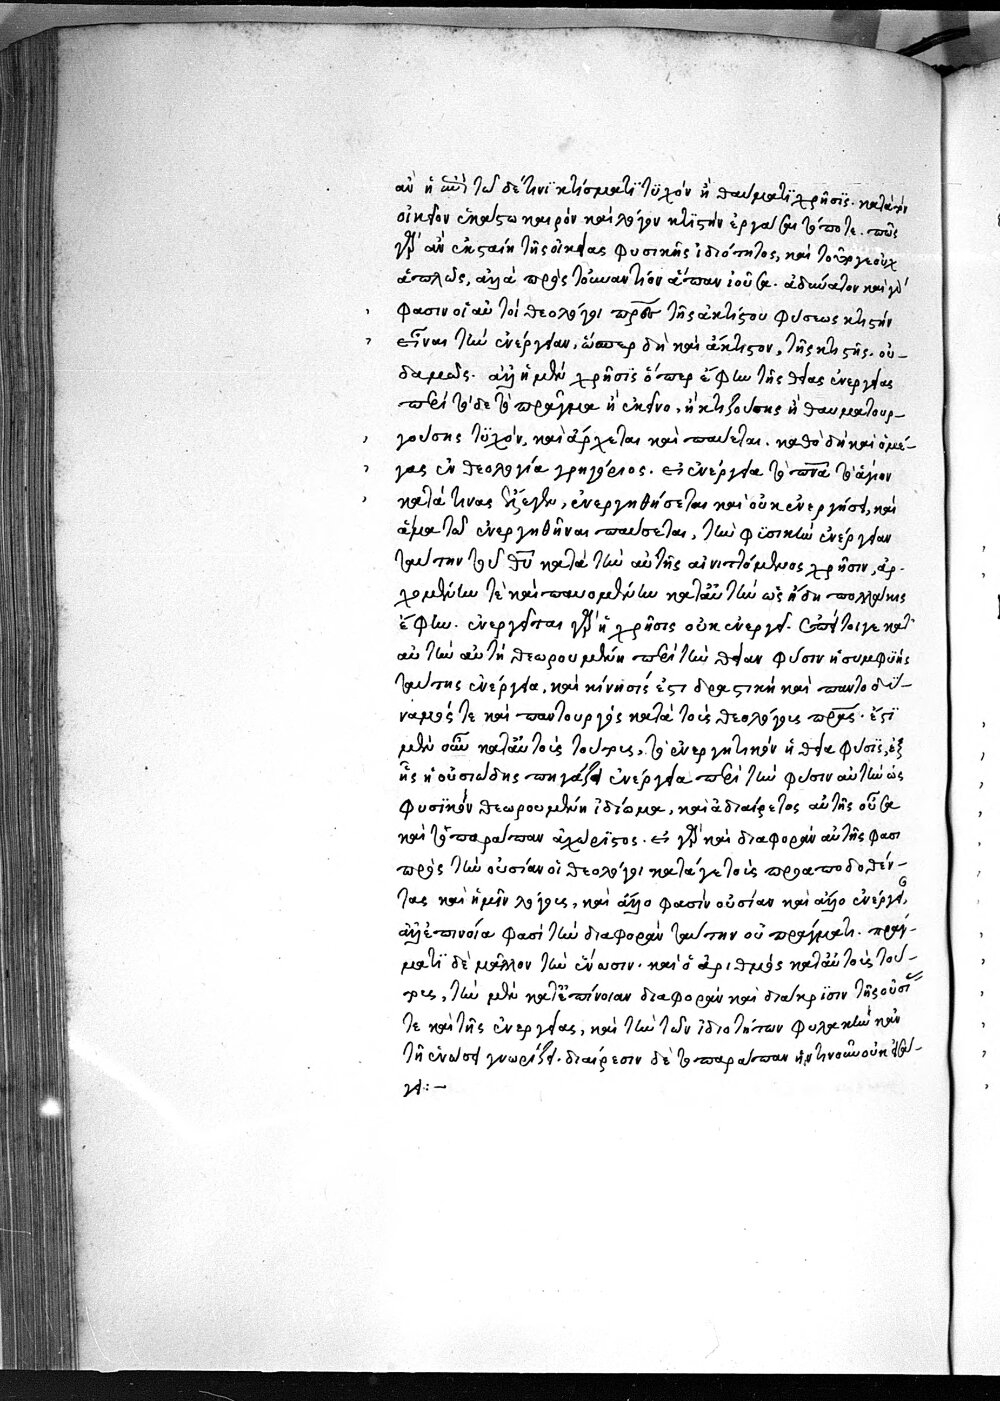 ἂν ἡ ἐπὶ τῶδέ τινι κτίσματι τυχὸν ἢ θαύματι χρῆσις. κατὰ τὸν
οἰκεῖον ἑκάστω καιρὸν καὶ λόγον κτιστὴν ἐργάσεται τό ποτε. πῶς
γὰρ ἂν ἐκσταίη τῆς οἰκείας φυσικῆς ἰδιότητος, καὶ τοῦργε οὐχ
ἁπλῶς, ἀλλὰ πρὸς τοὐναντίον ἅπαν ἰοῦσα. ἀδύνατον καὶ γὰρ
φασιν οἱ αὐτοὶ θεολόγοι πρὸς τῆς ἀκτίστου φύσεως κτιστὴν
εἶναι τὴν ἐνέργειαν, ὥσπερ δὴ καὶ ἄκτιστον, τῆς κτιστῆς. οὐ-
δαμῶς. ἀλλ' ἡ μὲν χρῆσις ὅπερ ἔφην τῆς θείας ἐνεργείας
περὶ τό δε τὸ πρᾶγμα ἢ ἐκεῖνο, ἢ κτιζούσης ἢ θαυματουρ-
γούσης τυχόν, καὶ ἄρχεται καὶ παύεται. καθὸ δὴ καὶ ὁ μέ-
γας ἐν θεολογία γρηγόριος. εἰ ἐνέργεια τὸ πνα τὸ ἅγιον
κατά τινας ἔλεγεν, ἐνεργηθήσεται καὶ οὐκ ἐνεργήσει, καὶ
ἅμα τῶ ἐνεργηθῆναι παύσεται, τὴν φυσικὴν ἐνέργειαν
ταύτην τοῦ θυ κατὰ τὴν αὐτῆς αἰνιττόμενος χρῆσιν, ἀρ-
χομένην τὲ καὶ παυομένην κατ' αὐτὴν ὡς ἤδη πολλάκις
ἔφην. ἐνεργεῖται γὰρ ἡ χρῆσις οὐκ ἐνεργεῖ. ἐπεί τοιγε κατ'
αὐτὴν αὐτὴ θεωρουμένη περὶ τὴν θείαν φύσιν ἡ συμφυὴς
ταύτης ἐνέργεια, καὶ κίνησίς ἐστι δραστικὴ καὶ παντοδύ-
ναμός τε καὶ παντουργὸς κατὰ τοὺς θεολόγους πρας. ἔστι
μὲν οὖν κατ' αὐτοὺς τούτους, τὸ ἐνεργητικὸν ἡ θεία φύσις, ἐξ
ἧς ἡ οὐσιώδης πηγάζει ἐνέργεια περὶ τὴν φύσιν αὐτὴν ὡς
φυσικὸν θεωρουμένη ἰδίωμα, καὶ ἀδιαίρετος αὐτῆς οὖσα
καὶ τὸ παράπαν ἀχώριστος. εἰ γὰρ καὶ διαφορὰν αὐτῆς φασι
πρὸς τὴν οὐσίαν οἱ θεολόγοι κατάγε τοὺς προαποδοθέν-
τας καὶ ἡμῖν λόγους, καὶ ἄλλο φασὶν οὐσίαν καὶ ἄλλο ἐνέργειαν,
ἀλλ' ἐπινοία φασὶ τὴν διαφορὰν ταύτην οὐ πράγματι. πράγ-
ματι δὲ μᾶλλον τὴν ἕνωσιν. καὶ ὁ ἀριθμὸς κατ' αὐτοὺς τού-
τους, τὴν μὲν κατ' ἐπίνοιαν διαφορὰν καὶ διάκρισιν τῆς οὐσίας
τε καὶ τῆς ἐνεργείας, καὶ τὴν τῶν ἰδιοτήτων φυλακὴν κἀν
τῆ ἑνώσει γνωρίζει. διαίρεσιν δὲ τὸ παράπαν ἡντιναοῦν οὐκ εἰσά-
γει:–